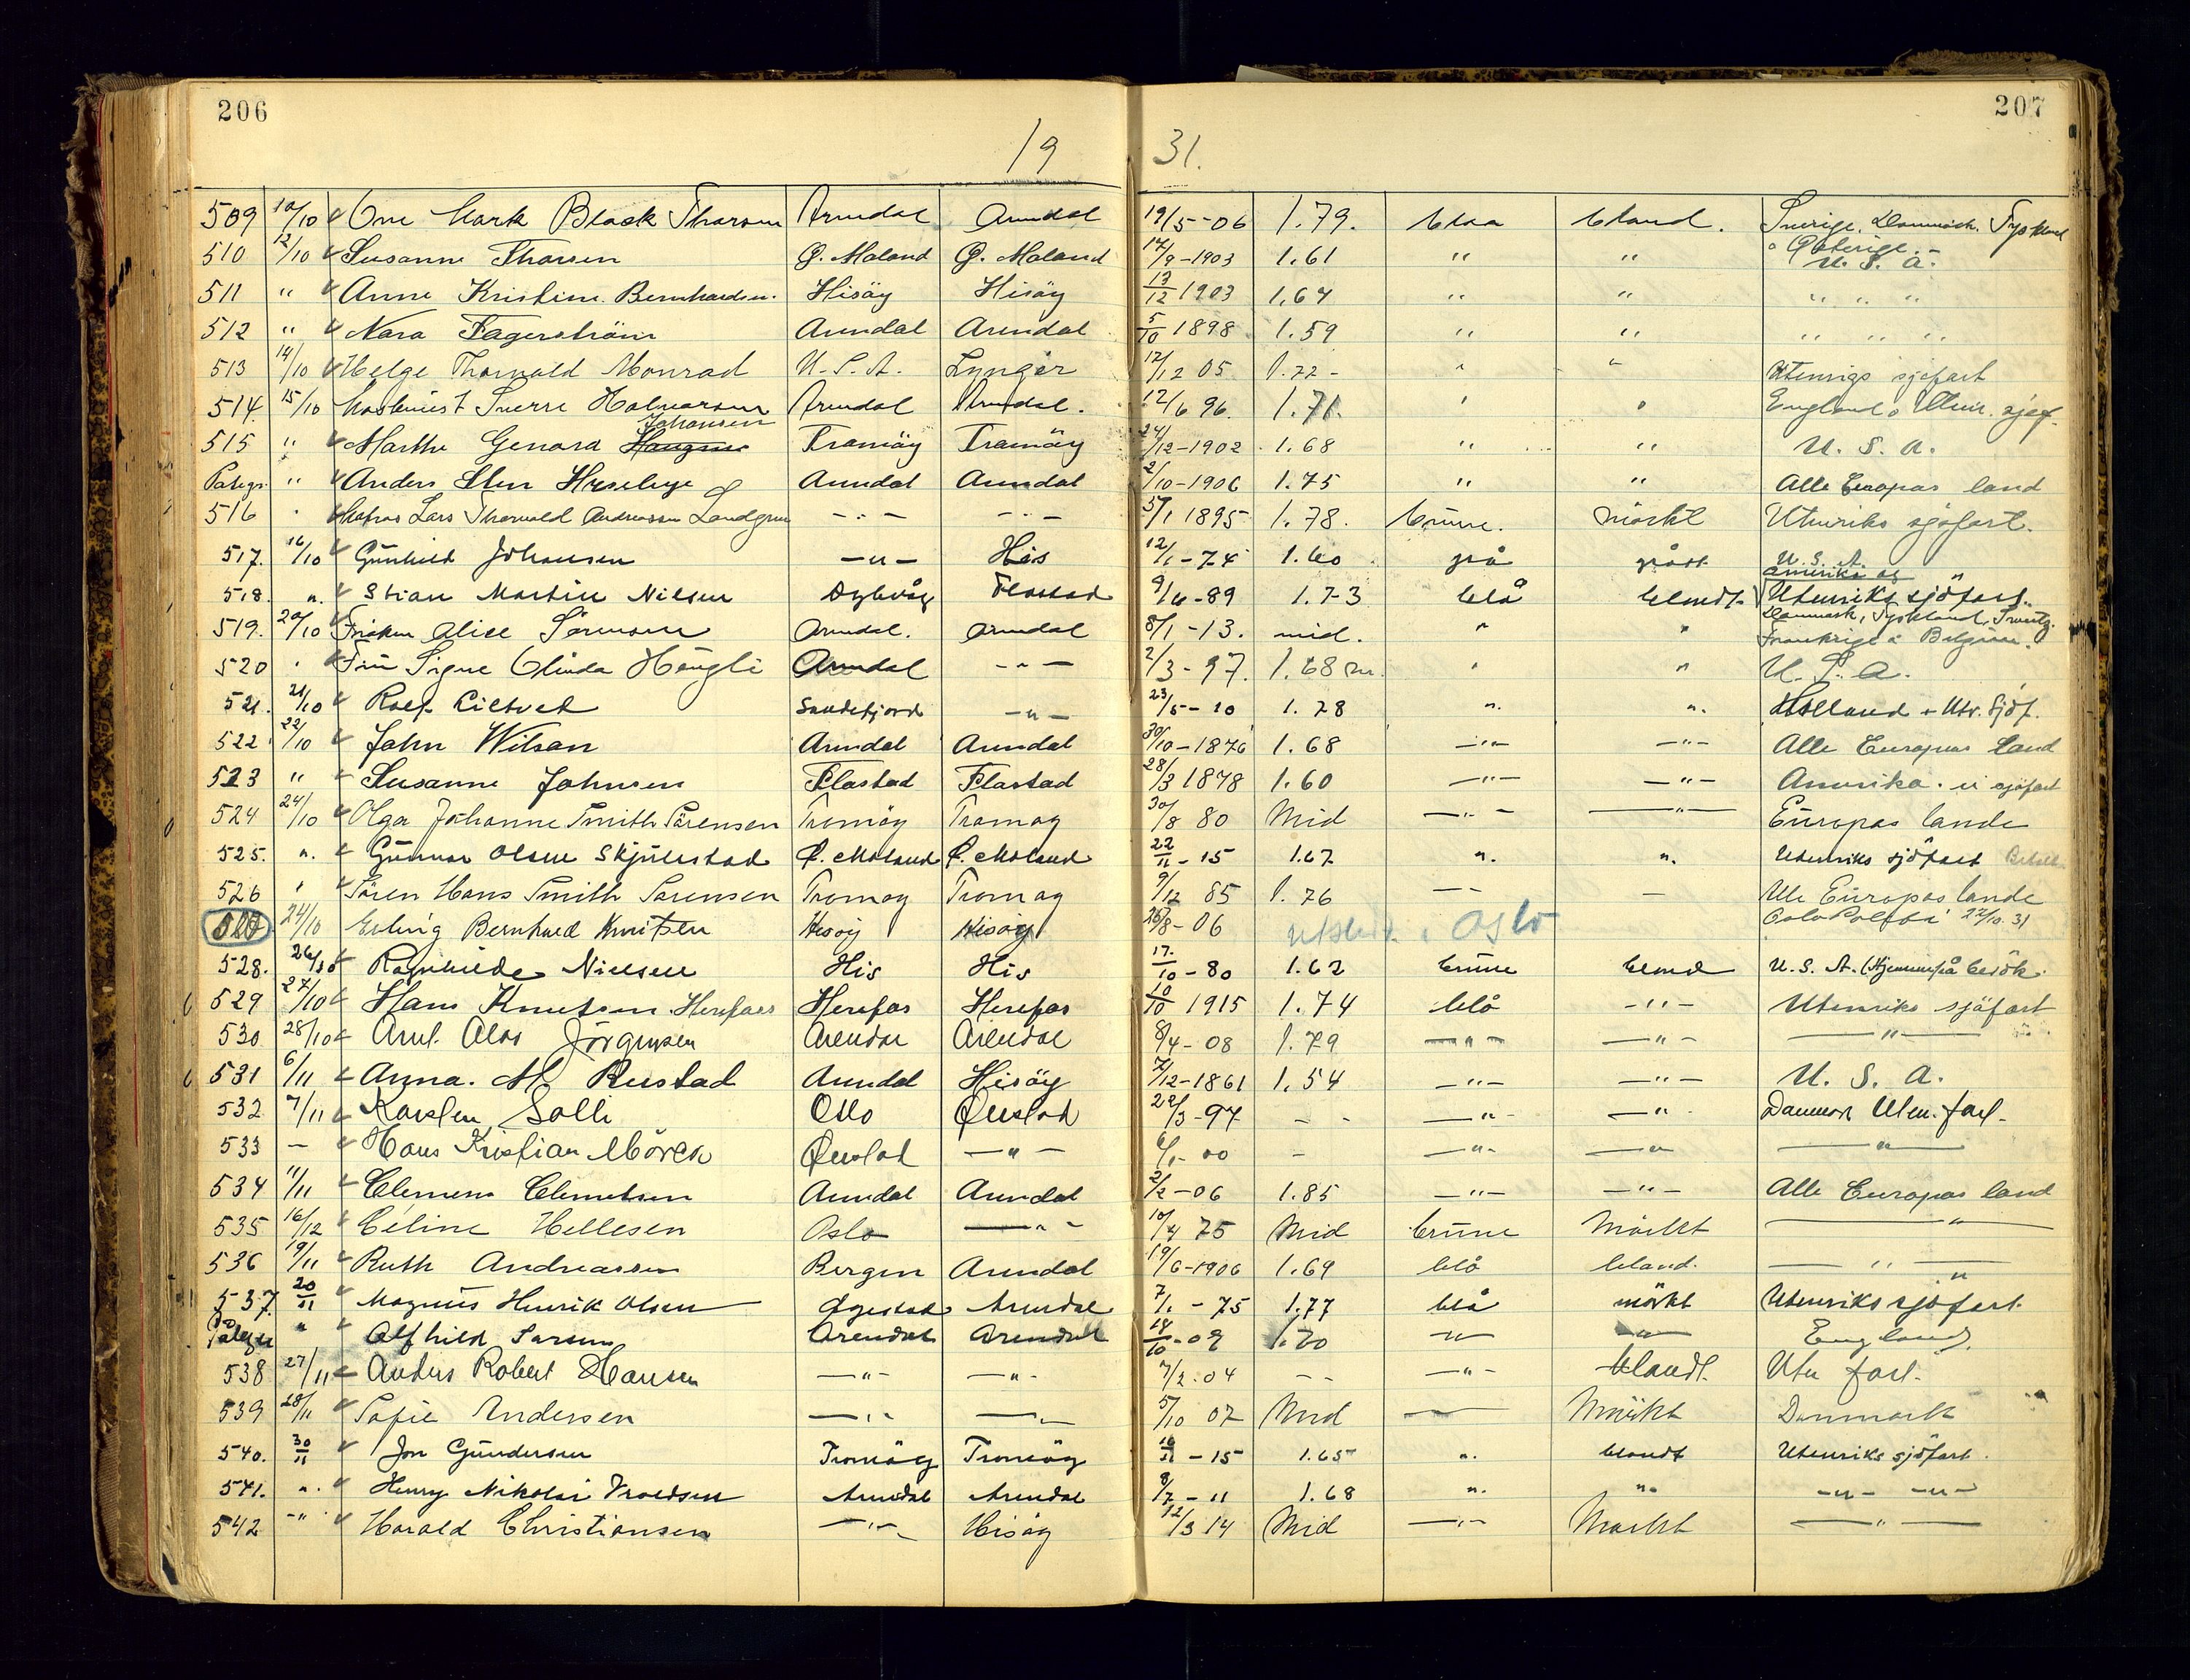 206
207
19 31.
509 10/10 Ove Mark Black Thorsen Arendal Arendal 19/5-06 1.79. blaa blond. Sverige, Danmark. Tyskland
510 12/10 Susanne Thorsen Ø. Moland Ø. Moland 14/9-1903 1.61 " " U. S. A.
511 " Anne Kristine Bernhardsen. Hisöy Hisöy 13/12 1903 1,64 " " " " "
512 " Nora Fagerström Arendal Arendal 5/10 1898 1.59 " " " " " "
513 14/10 Helge Thorvald Monrad U.S.A. Lyngör 12/12 05 1.72 - " " Utenrigs sjøfart
514. 15/10 Sverre Halvorsen Arendal Arendal. 12/6 96. 1.71. " " England o. Uten. sjøf.
Johansen
515 " Marthe Genora Haugene Tromöy Tromöy 24/12-1902 1.68 " " U. S. A.
Påtegn. " Anders Sten Arendal Arendal 2/10-1906 1.75 " " Alle Europas land
516 " Lars Thorvald Andreassen Landgren - " - - " - 5/1 1895 1.78. brune. mörkt Utenriks sjøfart.
517. 16/10 Gunhild Johansen - " - His 12/1-74 1.60 grå grått U. S. A.
Amerika og
518. ". Stian Martin Nilsen Dybvåg Flosta 9/6-89 1.73 blå blondt. Utenriks sjöfart.
519. 20/10 Frøken Alice Sörensen Arendal. Arendal 8/1-13. mid. " " Danmark, Tyskland,
Frankrige o Belgien.
520 " Fru Signe Olinda Höugli Arendal - " - 2/3-97. 1.68 m. " " U. S. A.
521. 21/10 Rolf Sandefjord - " - 23/5-10 1.78 ". ". Holland + Utr. Sjöf.
522 22/10 John Wilson Arendal Arendal 30/10-1876 1.68 - " - - " - Alle Europas land
523 " Susanne Johnsen Flostad Flostad 28/3 1878 1.60 - " - - " - Amerika.
524 24/10 Olga Johanne Smith Sörensen Tromöy Tromoy 30/8 80 Mid - " - - " - Europas lande
525. ". Gunnar Olsen Skjulestad Ø. Moland Ø. Moland 22/11-15 1.67 ". ". Utenriks sjöfart
526 " Sören Hans Smith Sorensen Tromoy Tromoy 9/12 85 1.76 - - - Ute Europas lande
527 24/10 Erling Bernhard Knutsen Hisöy Hisöy 26/8-06 Utsted. i Oslo Oslo Politi 27/10.31
528. 26/10 Ragnhilde Nielsen His His 17./10-80 1.62 brune blond U. S. A. (Hjemme på besök.
529 27/10 Hans Knutsen Herefoss Herefos Herefos 10/10 1915 1.74 blå - " - Utenriks sjöfart
530 28/10 Arnt. Jörgensen Arendal Arendal 8/4-08 1.79 - " - - " - - " -
531 6/11 Anna. M. Rustad Arendal Hisöy 7/12-1861 1.54 - " - - " - U. S. A.
532 7/11 Karsten Solli Oslo Øiestad 22/3-97 - - - " - - " - Danmark Uten. fart.
533 - Hans Kristian Mörch Øiestad - " - 6/1-00 - - " - - " - - " -
534 11/11 Clemens Clemetsen Arendal Arendal 2/2-06 1.85 - " - - " - Alle Europas land
535 16/12 Celine Hellesen Oslo - " - 10/4 75 Mid brune Mörkt - " -
536 19/11 Ruth Andreassen Bergen Arendal 19/6-1906 1.69 blå blond. - " -
537. 20/11 Magnus Henrik Olsen Øyestad Arendal 7/1-75 1.77 blå mörkt Utenriks sjöfart.
Påtegn " Alfhild Larsen Arendal Arendal 14/10-09 1.70 - " - - " - England.
538 27/11 Anders Robert Hansen - " - - " - 7/2-04 - - - " - blondt. Uten fart.
539 28/11 Sofie Andersen - " - - " - 5/10 07 Mid - Mörkt Danmark
540. 30/11 Jon Gundersen Tromöy Tromöy 16/11-15 1.65 ". blondt Utenriks sjöfart.
541. ". Henry Nikolai Troldsen Arendal Arendal 8/7-11 1.68 ". ". - " - - " -
542 - " Harald Christiansen - " - Hisöy 12/3 14 Mid - " - Mörkt - " -